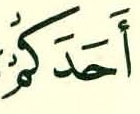 أَحَدَكُمْ